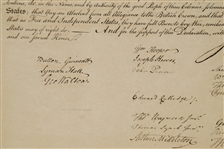 in the Name, and by Authority of the good People of these Colonies, solemnly
States, that they are Absolved from all Allegiance to the British Crown, and that
that as Free and Independent States, they have full Power to levy War,
States may of right do. — And for the support of this Declaration, with
our sacred Honor.
Button Gwinnett
Lyman Hall
Geo Walton.
Wm Hooper
Joseph Hewes,
John Penn
Edward Rutledge
Thos Heyward Junr
Thomas Lynch Junr
Arthur Middleton